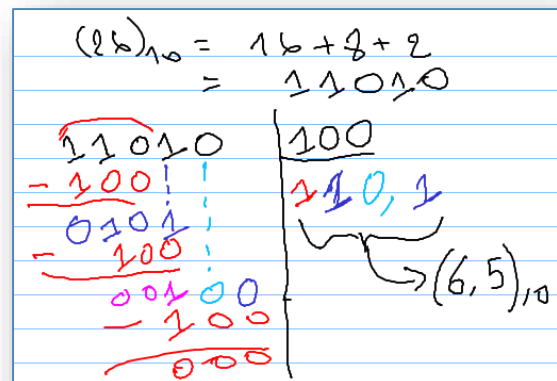 (26)₁₀ = 16 + 8 + 2
= 11010
11010 | 100
- 100 110,1
0101
- 100 → (6,5)₁₀
00100
- 100
000